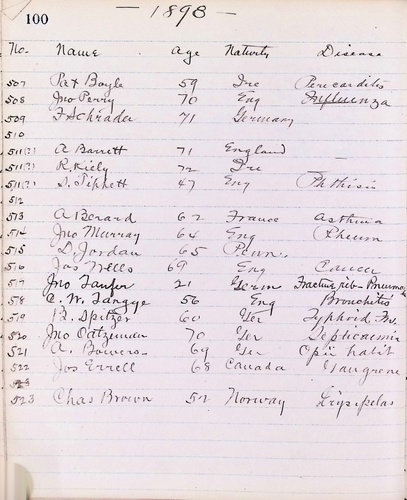 100
— 1898 —
No. Name Age Nativity Disease
507 Pat Boyle 59 Ire Pericarditis
508 Jno Perry 70 Eng Influenza
509 F Schrader 71 Germany
510
511(?) A Barrett 71 England —
511(?) R. Kiely 72 Ire —
511(?) Tippett 47 Eng Phthisis
512
513 A Berard 62 France Asthma
514 Jno Murray 64 Eng Rheum
515 D. Jordan 65 Penn.
516 Jos Wells 69 Eng Cancer
517 Jno 21 Germ Fracture rib - Pneumon
518 C. W. Tangye 56 Eng Bronchitis
519 Spitzer 60 Ger Typhoid
520 Jno 70 Ger Septicaemia
521 A. Bowers 69 Ger Opii habit
522 Jos Errell 68 Canada Gangrene
523
523 Chas Brown 52 Norway Erysipelas